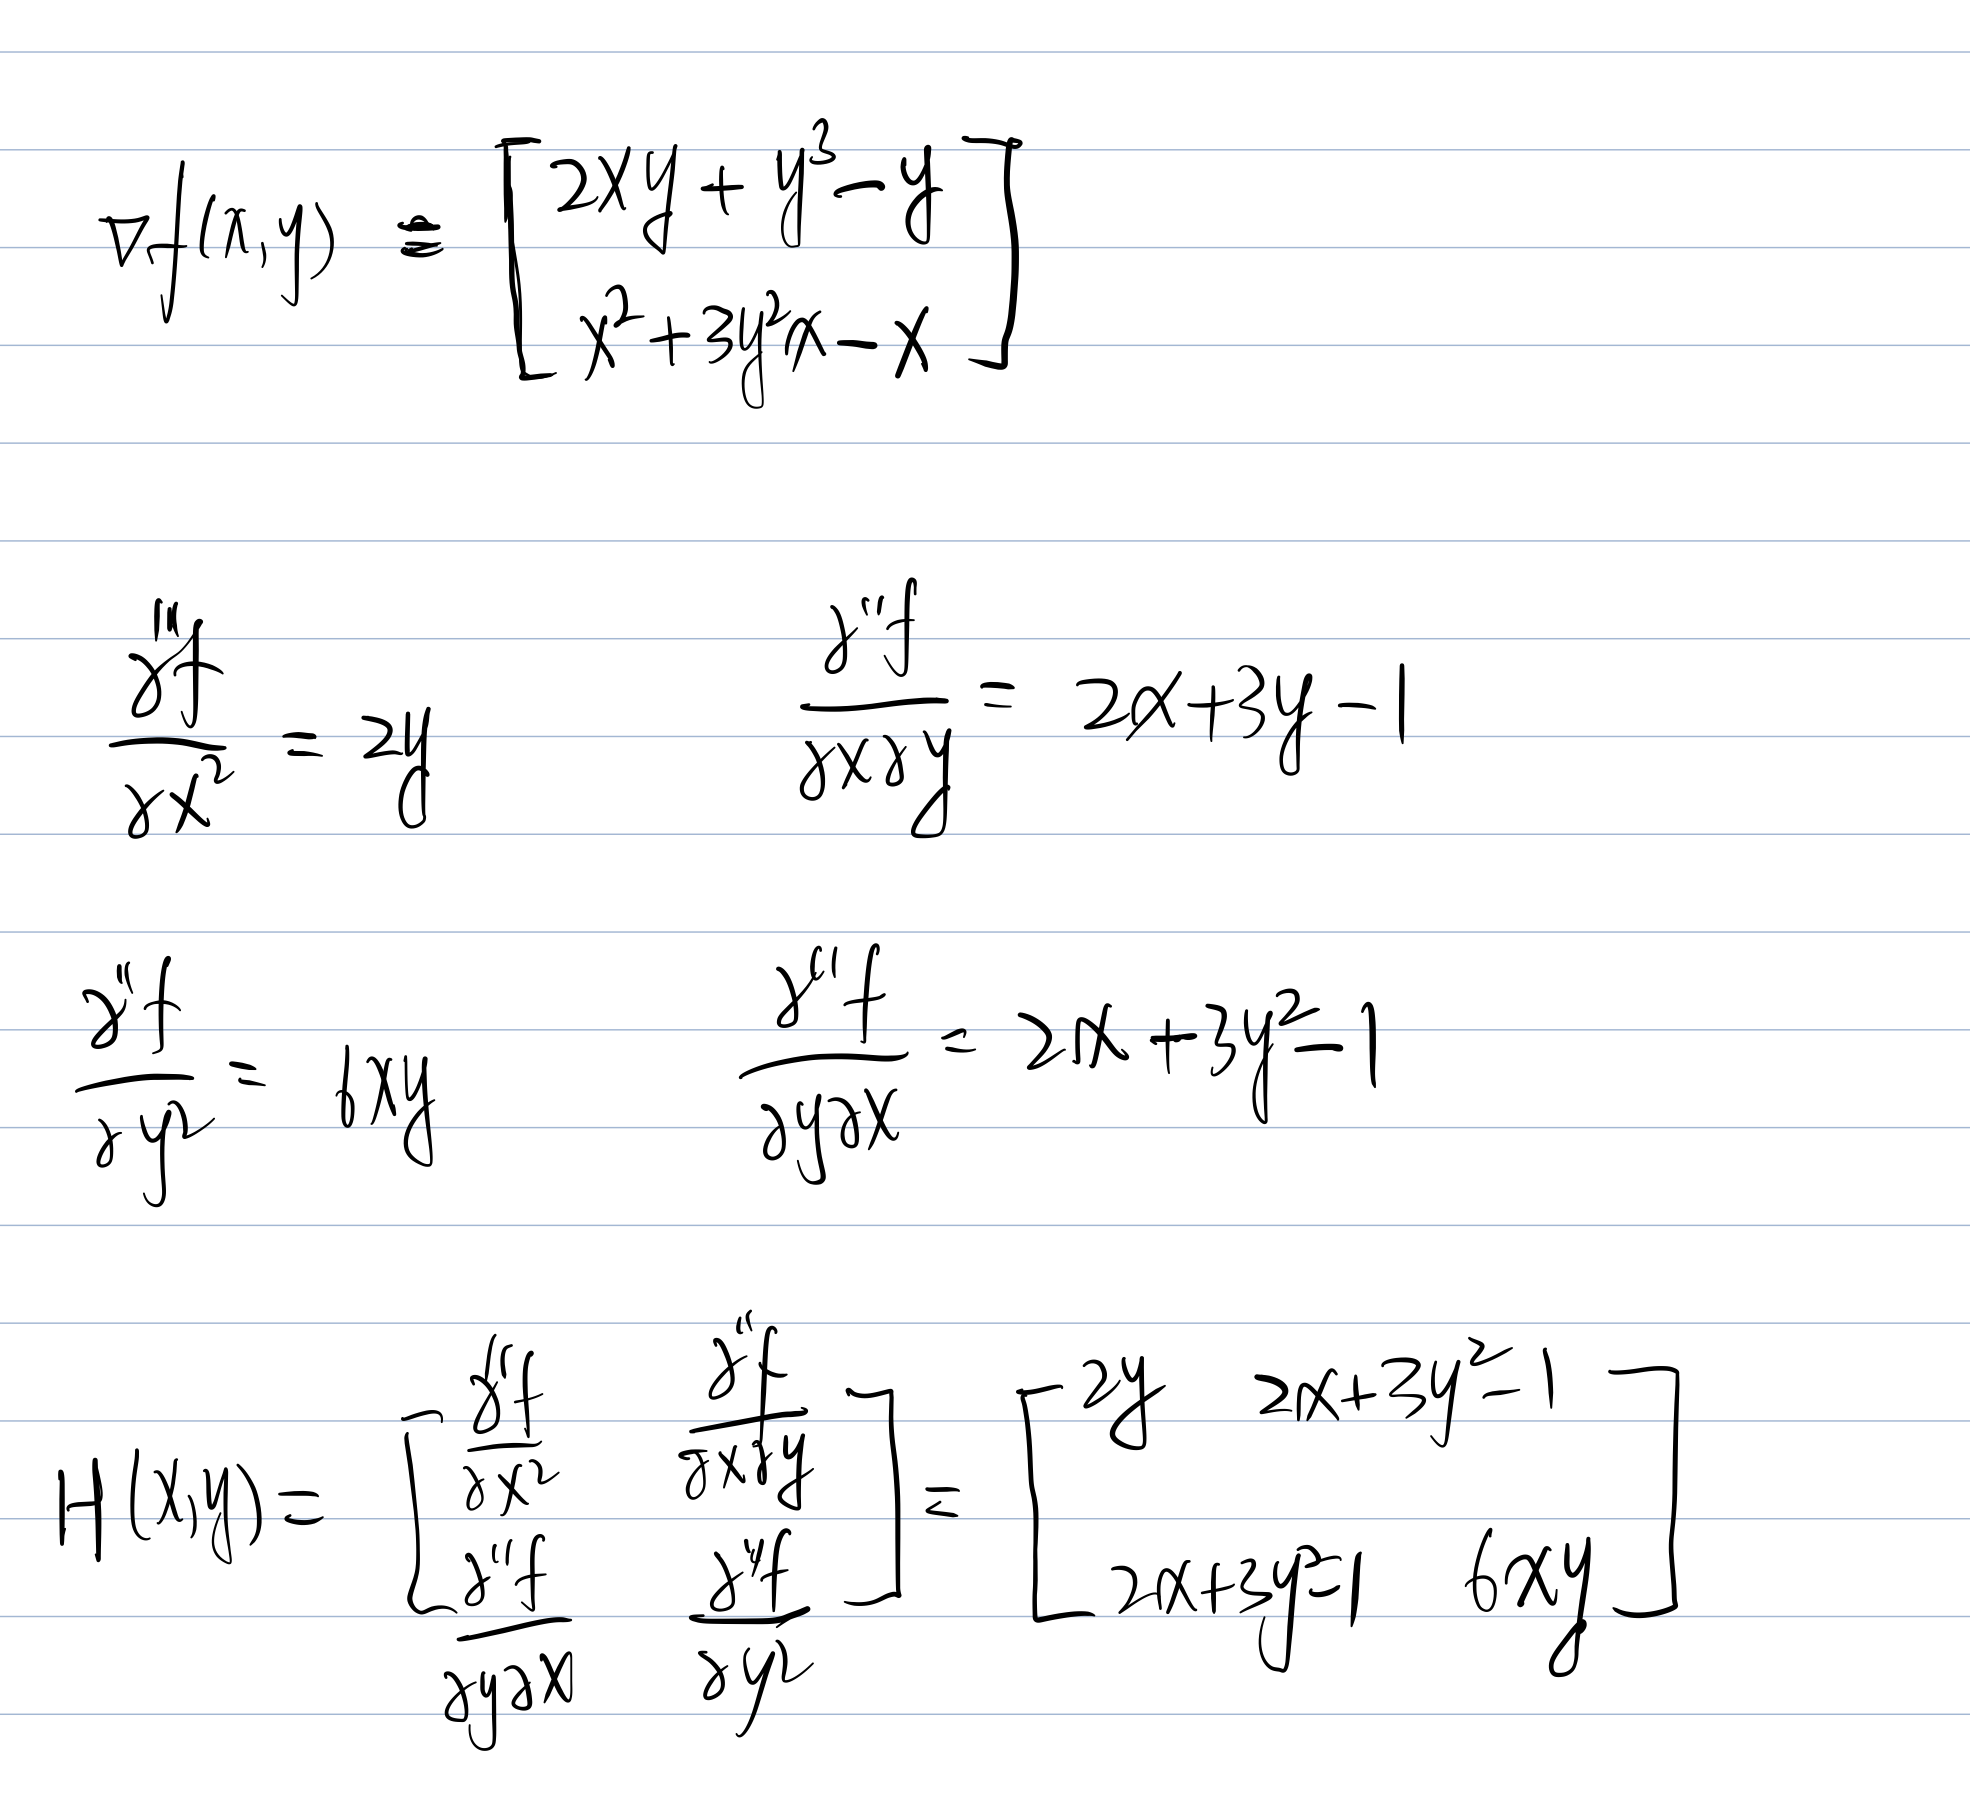 ∇f(x,y) = [ 2xy + y³ − y
x² + 3y²x − x ]
∂''f/∂x² = 2y    ∂''f/∂x∂y = 2x + 3y − 1
∂''f/∂y² = 6xy    ∂''f/∂y∂x = 2x + 3y² − 1
H(x,y) = [ ∂''f/∂x²    ∂''f/∂x∂y ] = [ 2y    2x + 3y² − 1 ]
[ ∂''f/∂y∂x    ∂''f/∂y² ]    [ 2x + 3y² − 1    6xy ]